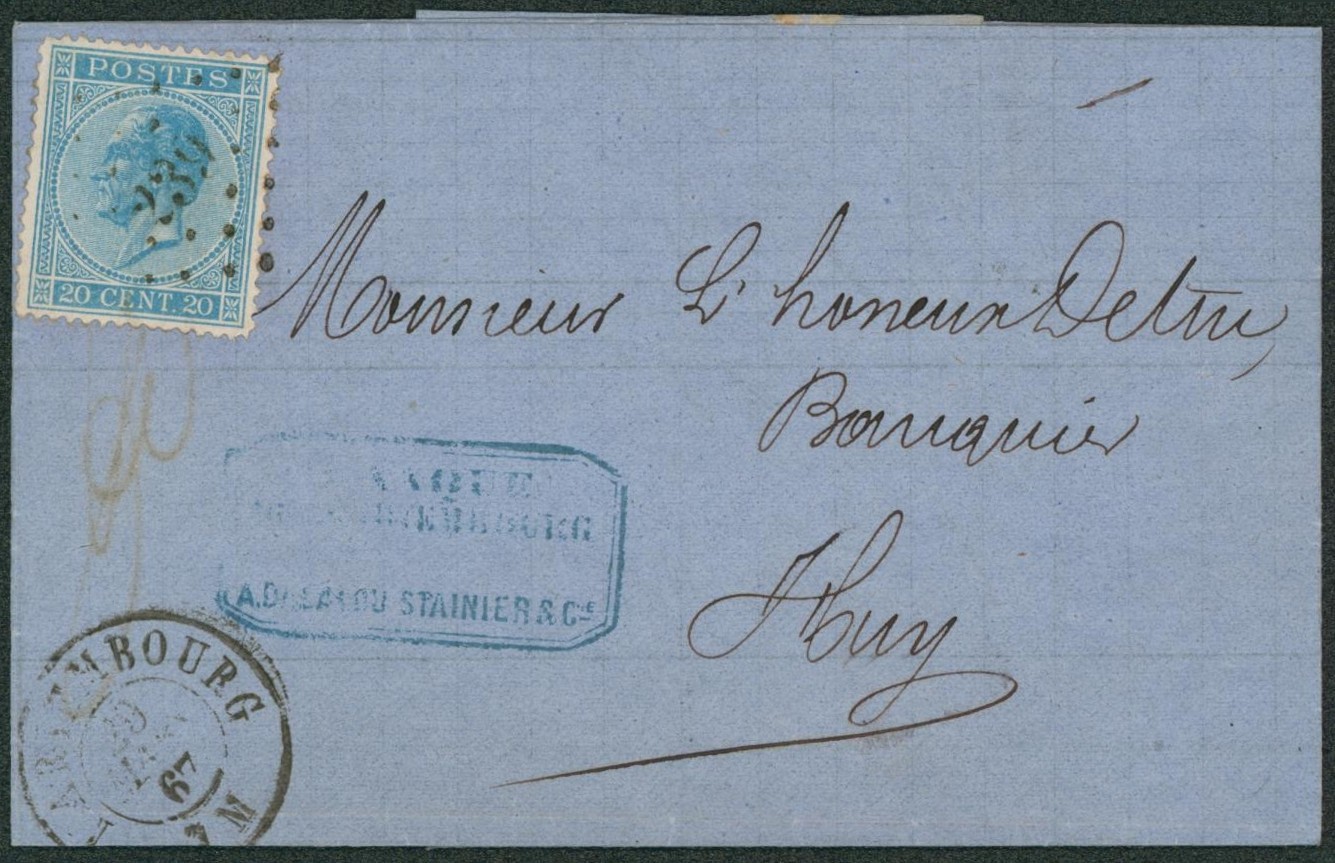 POSTES
239
20 CENT. 20
Monsieur L'honeux Detru,
Banquier
Huy
A. DELALOU STAINIER & Cie
MARIEMBOURG
67